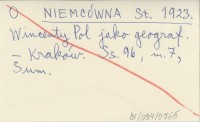 O NIEMCÓWNA St. 1923.
Wincenty Pol jako geograf.
– Kraków. Ss. 96, m. 7,
Sum.